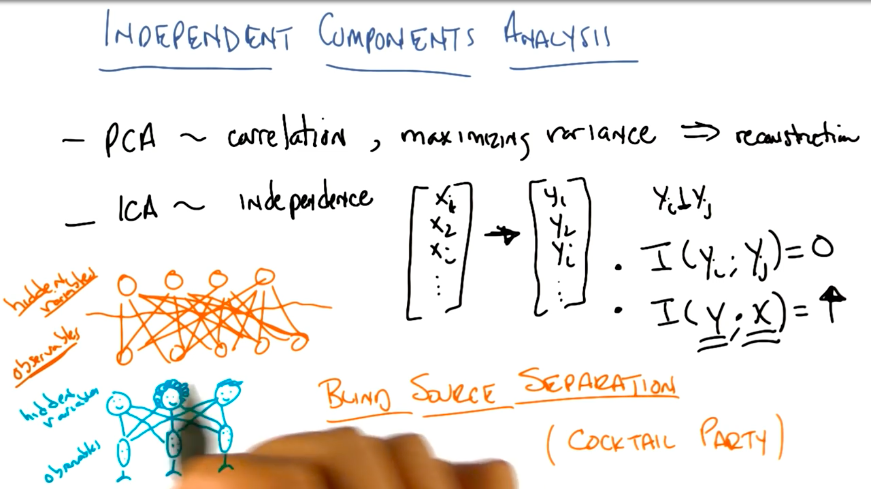 INDEPENDENT COMPONENTS ANALYSIS
- PCA ~ correlation, maximizing variance ⇒ reconstruction
- ICA ~ independence
[x₁ x₂ xᵢ ⋮] → [y₁ y₂ yᵢ ⋮]
yᵢ ⊥ yⱼ
• I(yᵢ; yⱼ) = 0
• I(Y; X) = ↑
hidden variables
observables
hidden variables
observables
BLIND SOURCE SEPARATION
(COCKTAIL PARTY)